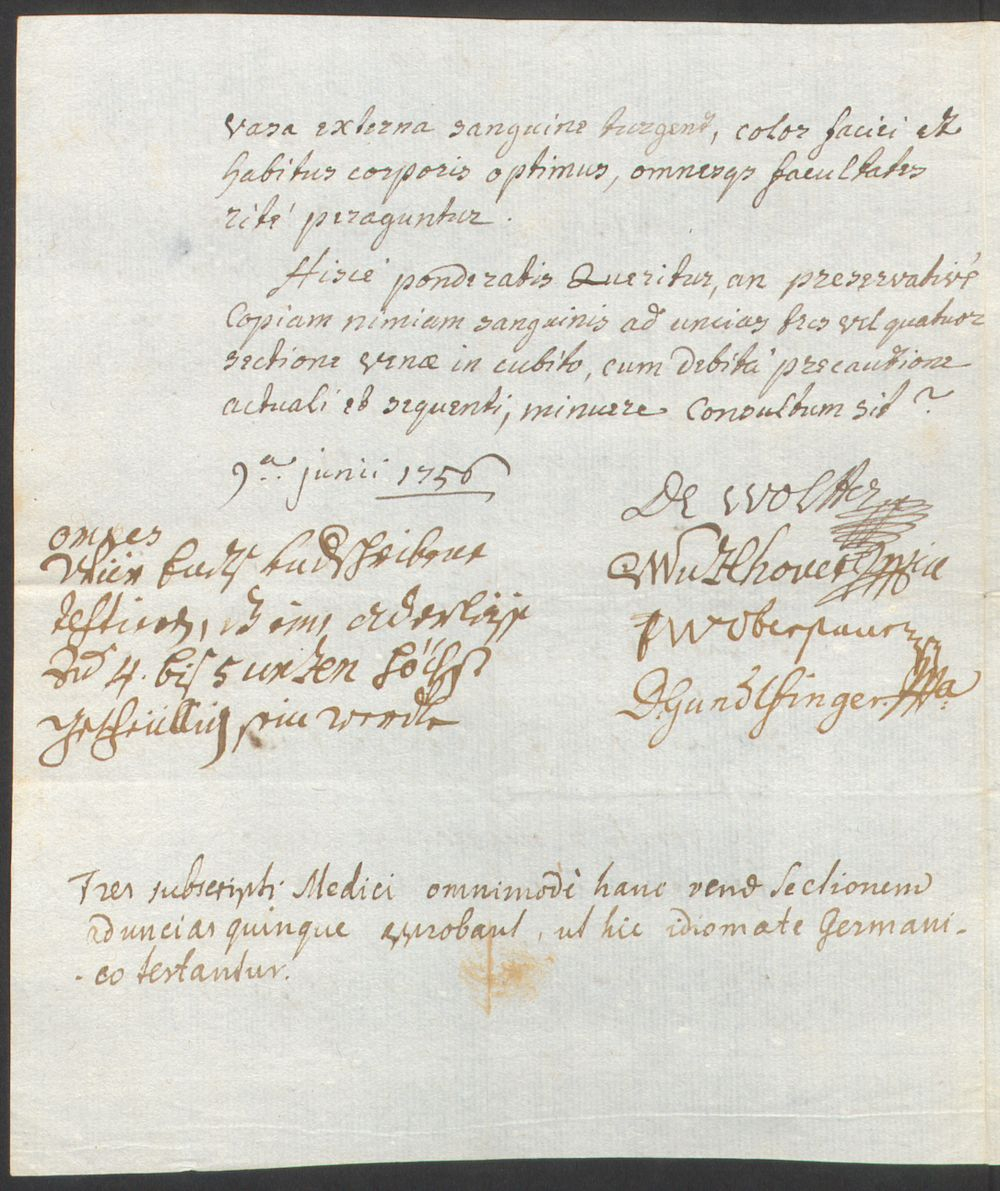 vasa externa sanguine turgent, color faciei et
habitus corporis optimus, omnesqs facultates
rité peraguntur.
Hisce ponderatis Queritur, an preservativé
Copiam nimiam sanguinis ad uncias tres vel quatuor
sectione venæ in cubito, cum debitá precautione
actuali et sequenti, minuere Consultum sit?
9.a junii 1756
De Wolter
omnes
aderläss
4. bis 5 unzen höchst
sein werde
Wuzlhover
Oberpaur
D. Gundlfinger
Tres subscripti Medici omnimodè hanc venæ Sectionem
ad uncias quinque approbant, ut hic idiomate Germani-
-co testantur.